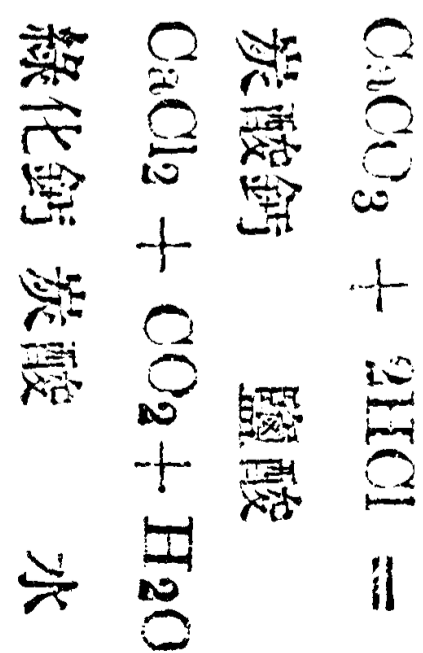 CaCO3 + 2HCl =
炭酸鈣 鹽酸
CaCl2 + CO2 + H2O
綠化鈣 炭酸 水